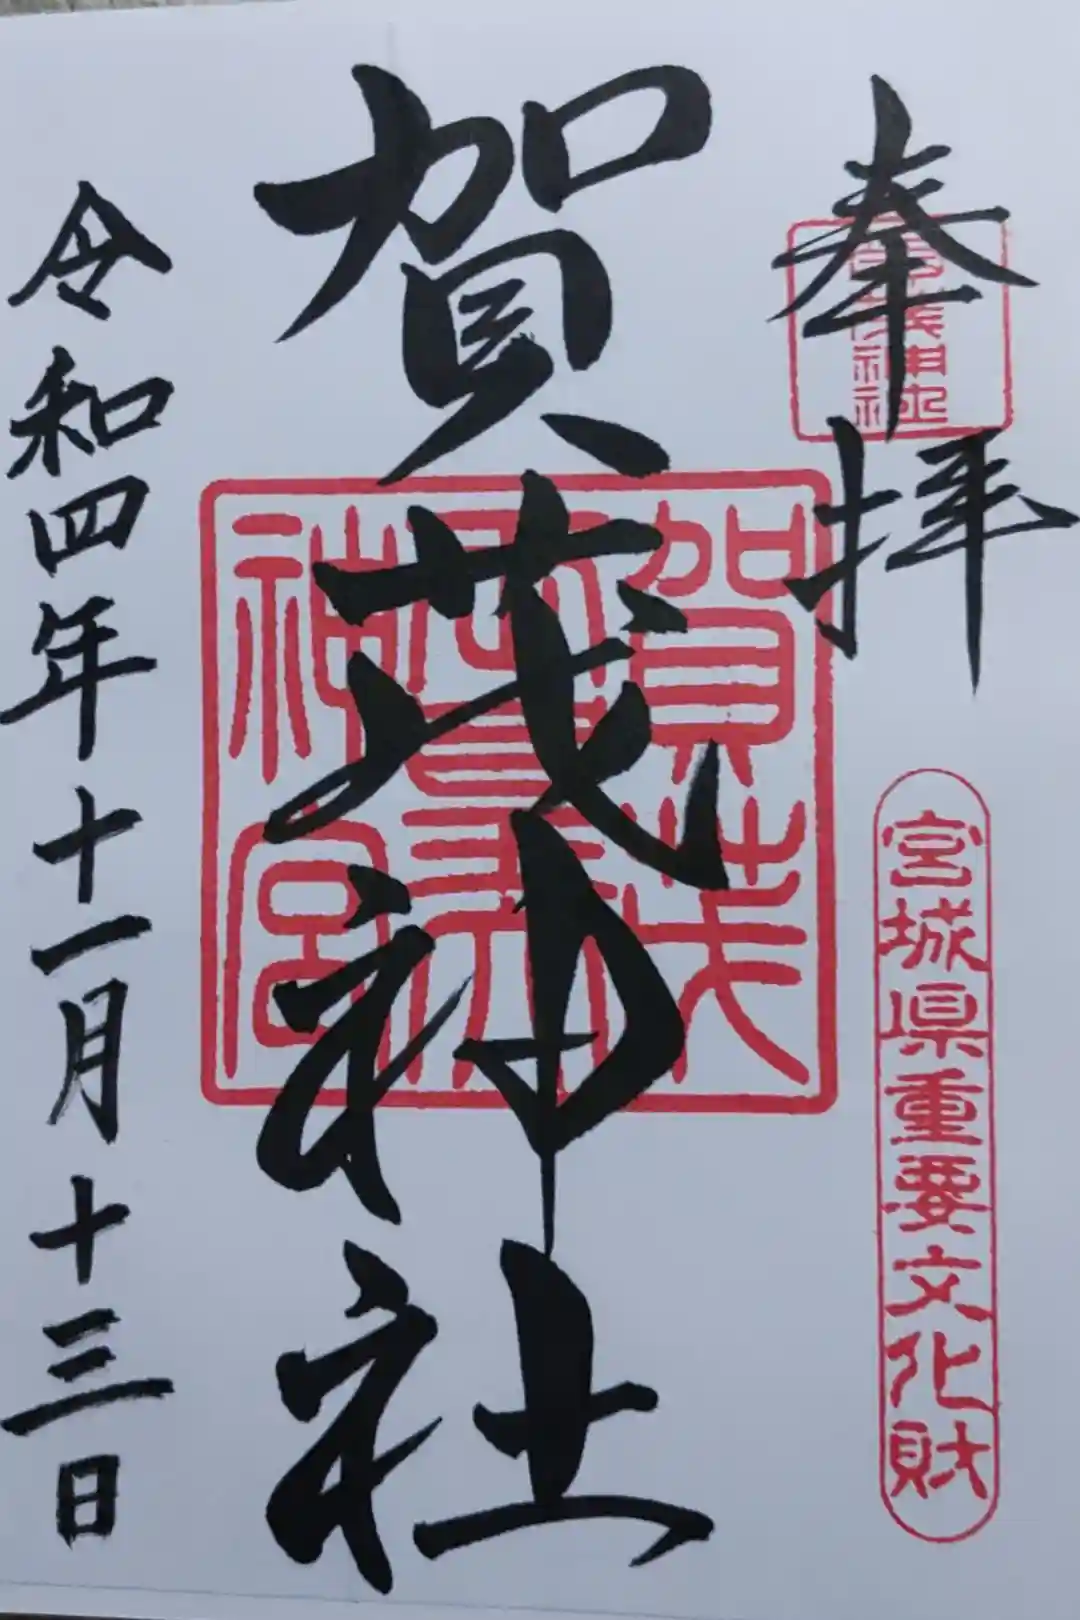 奉拝
宮城県重要文化財
賀茂神社
令和四年十一月十三日